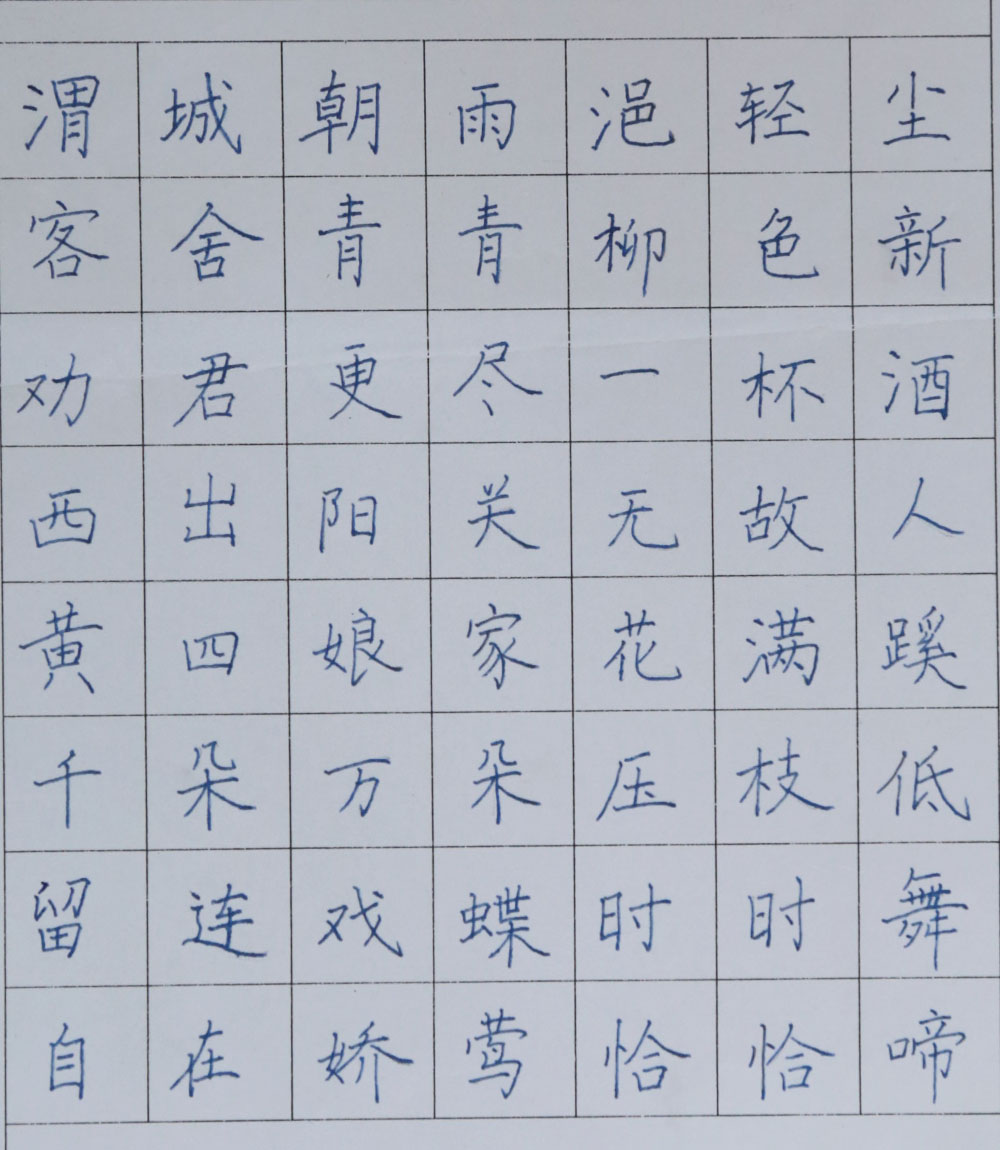 渭城朝雨浥轻尘
客舍青青柳色新
劝君更尽一杯酒
西出阳关无故人
黄四娘家花满蹊
千朵万朵压枝低
留连戏蝶时时舞
自在娇莺恰恰啼